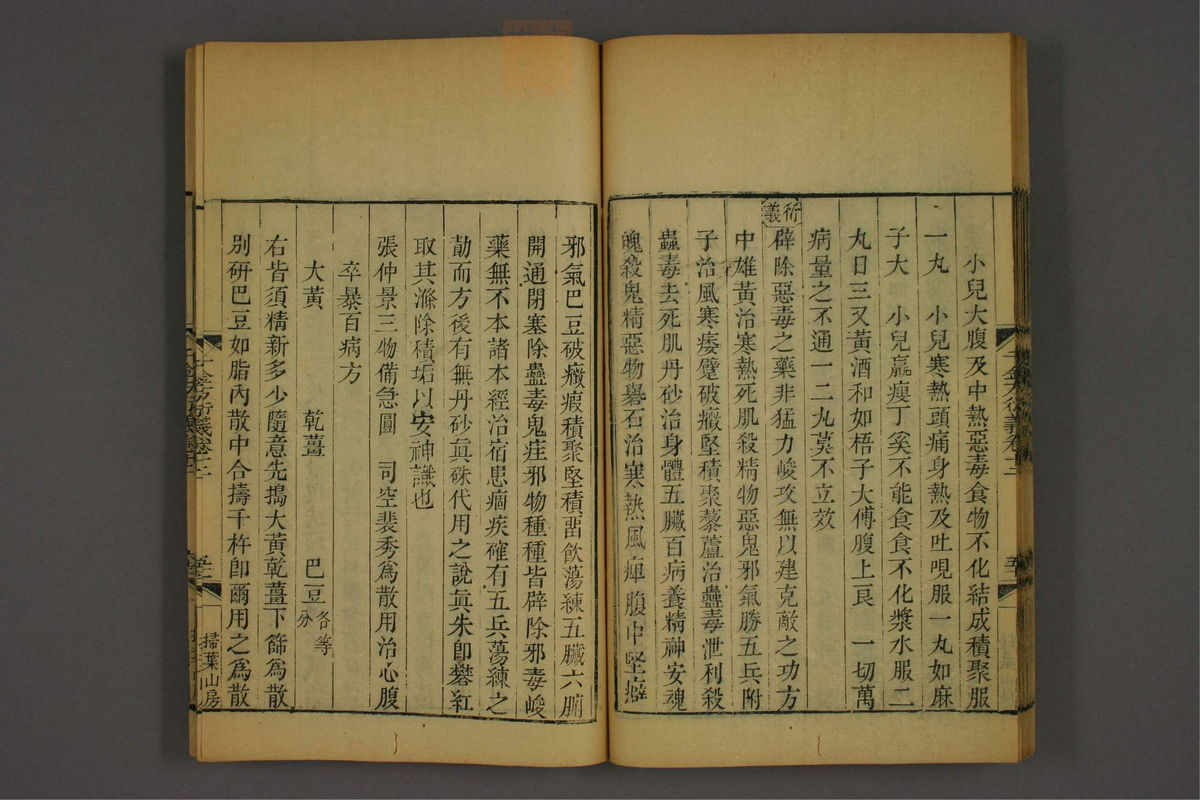 小兒大腹及中熱惡毒食物不化結成積聚服
一丸　小兒寒熱頭痛身熱及吐哯服一丸如麻
子大　小兒羸瘦丁奚不能食食不化漿水服二
丸日三又黃酒和如梧子大傅腹上良　一切萬
病量之不通一二丸莫不立效
衍義
辟除惡毒之藥非猛力峻攻無以建克敵之功方
中雄黃治寒熱死肌殺精物惡鬼邪氣勝五兵附
子治風寒痿躄破癥堅積聚藜蘆治蠱毒泄利殺
蟲毒去死肌丹砂治身體五臟百病養精神安魂
魄殺鬼精惡物礜石治寒熱風痺腹中堅癖
邪氣巴豆破癥瘕積聚堅積留飲蕩練五臟六腑
開通閉塞除蠱毒鬼疰邪物種種皆辟除邪毒峻
藥無不本諸本經治宿患痼疾確有五兵蕩練之
勣而方後有無丹砂眞硃代用之說眞朱卽礬紅
取其滌除積垢以安神識也
張仲景三物備急圓　司空裴秀爲散用治心腹
卒暴百病方
大黃　乾薑　巴豆各等分
右皆須精新多少隨意先搗大黃乾薑下篩爲散
別研巴豆如脂內散中合擣千杵卽爾用之爲散
千金方衍義卷十二
掃葉山房